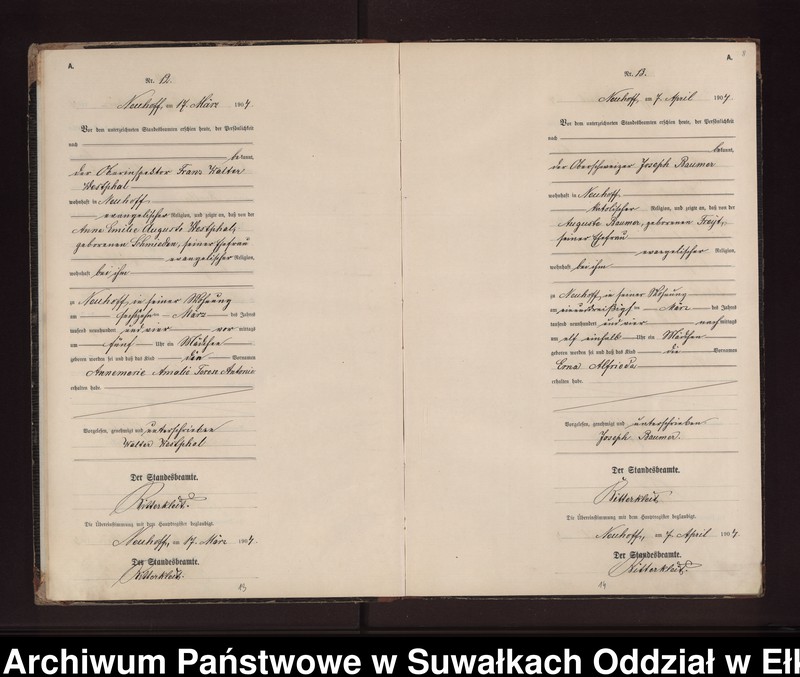 A.
Nr. 12.
Neuhoff, am 17. März 1904.
Vor dem unterzeichneten Standesbeamten erschien heute, der Persönlichkeit
nach
bekannt,
der Oberinspektor Franz Walter
Westphal
wohnhaft in Neuhoff
evangelischer Religion, und zeigte an, daß von der
Anna Emilie Auguste Westphal,
geborenen Schmieden, seiner Ehefrau
evangelischer Religion,
wohnhaft bei ihm
zu Neuhoff, in seiner Wohnung
am sechszehnten März des Jahres
tausend neunhundert und vier vormittags
um fünf Uhr ein Mädchen
geboren worden sei und daß das Kind die Vornamen
Annemarie Amalie Antonie
erhalten habe.
Vorgelesen, genehmigt und unterschrieben
Walter Westphal
Der Standesbeamte.
Ritterkleit.
Die Übereinstimmung mit dem Hauptregister beglaubigt.
Neuhoff, am 17. März 1904.
Der Standesbeamte.
Ritterkleit.
13
A.
Nr. 13.
Neuhoff, am 7. April 1904.
Vor dem unterzeichneten Standesbeamten erschien heute, der Persönlichkeit
nach
bekannt,
der Oberschweizer Joseph Raumer
wohnhaft in Neuhoff
katolischer Religion, und zeigte an, daß von der
Auguste Raumer, geborenen
seiner Ehefrau
evangelischer Religion,
wohnhaft bei ihm
zu Neuhoff, in seiner Wohnung
am einunddreißigsten März des Jahres
tausend neunhundert und vier nachmittags
um elf einhalb Uhr ein Mädchen
geboren worden sei und daß das Kind die Vornamen
Erna Alfriede
erhalten habe.
Vorgelesen, genehmigt und unterschrieben
Joseph Raumer.
Der Standesbeamte.
Ritterkleit.
Die Übereinstimmung mit dem Hauptregister beglaubigt.
Neuhoff, am 7. April 1904.
Der Standesbeamte.
Ritterkleit.
14
Archiwum Państwowe w Suwałkach Oddział w Ełk